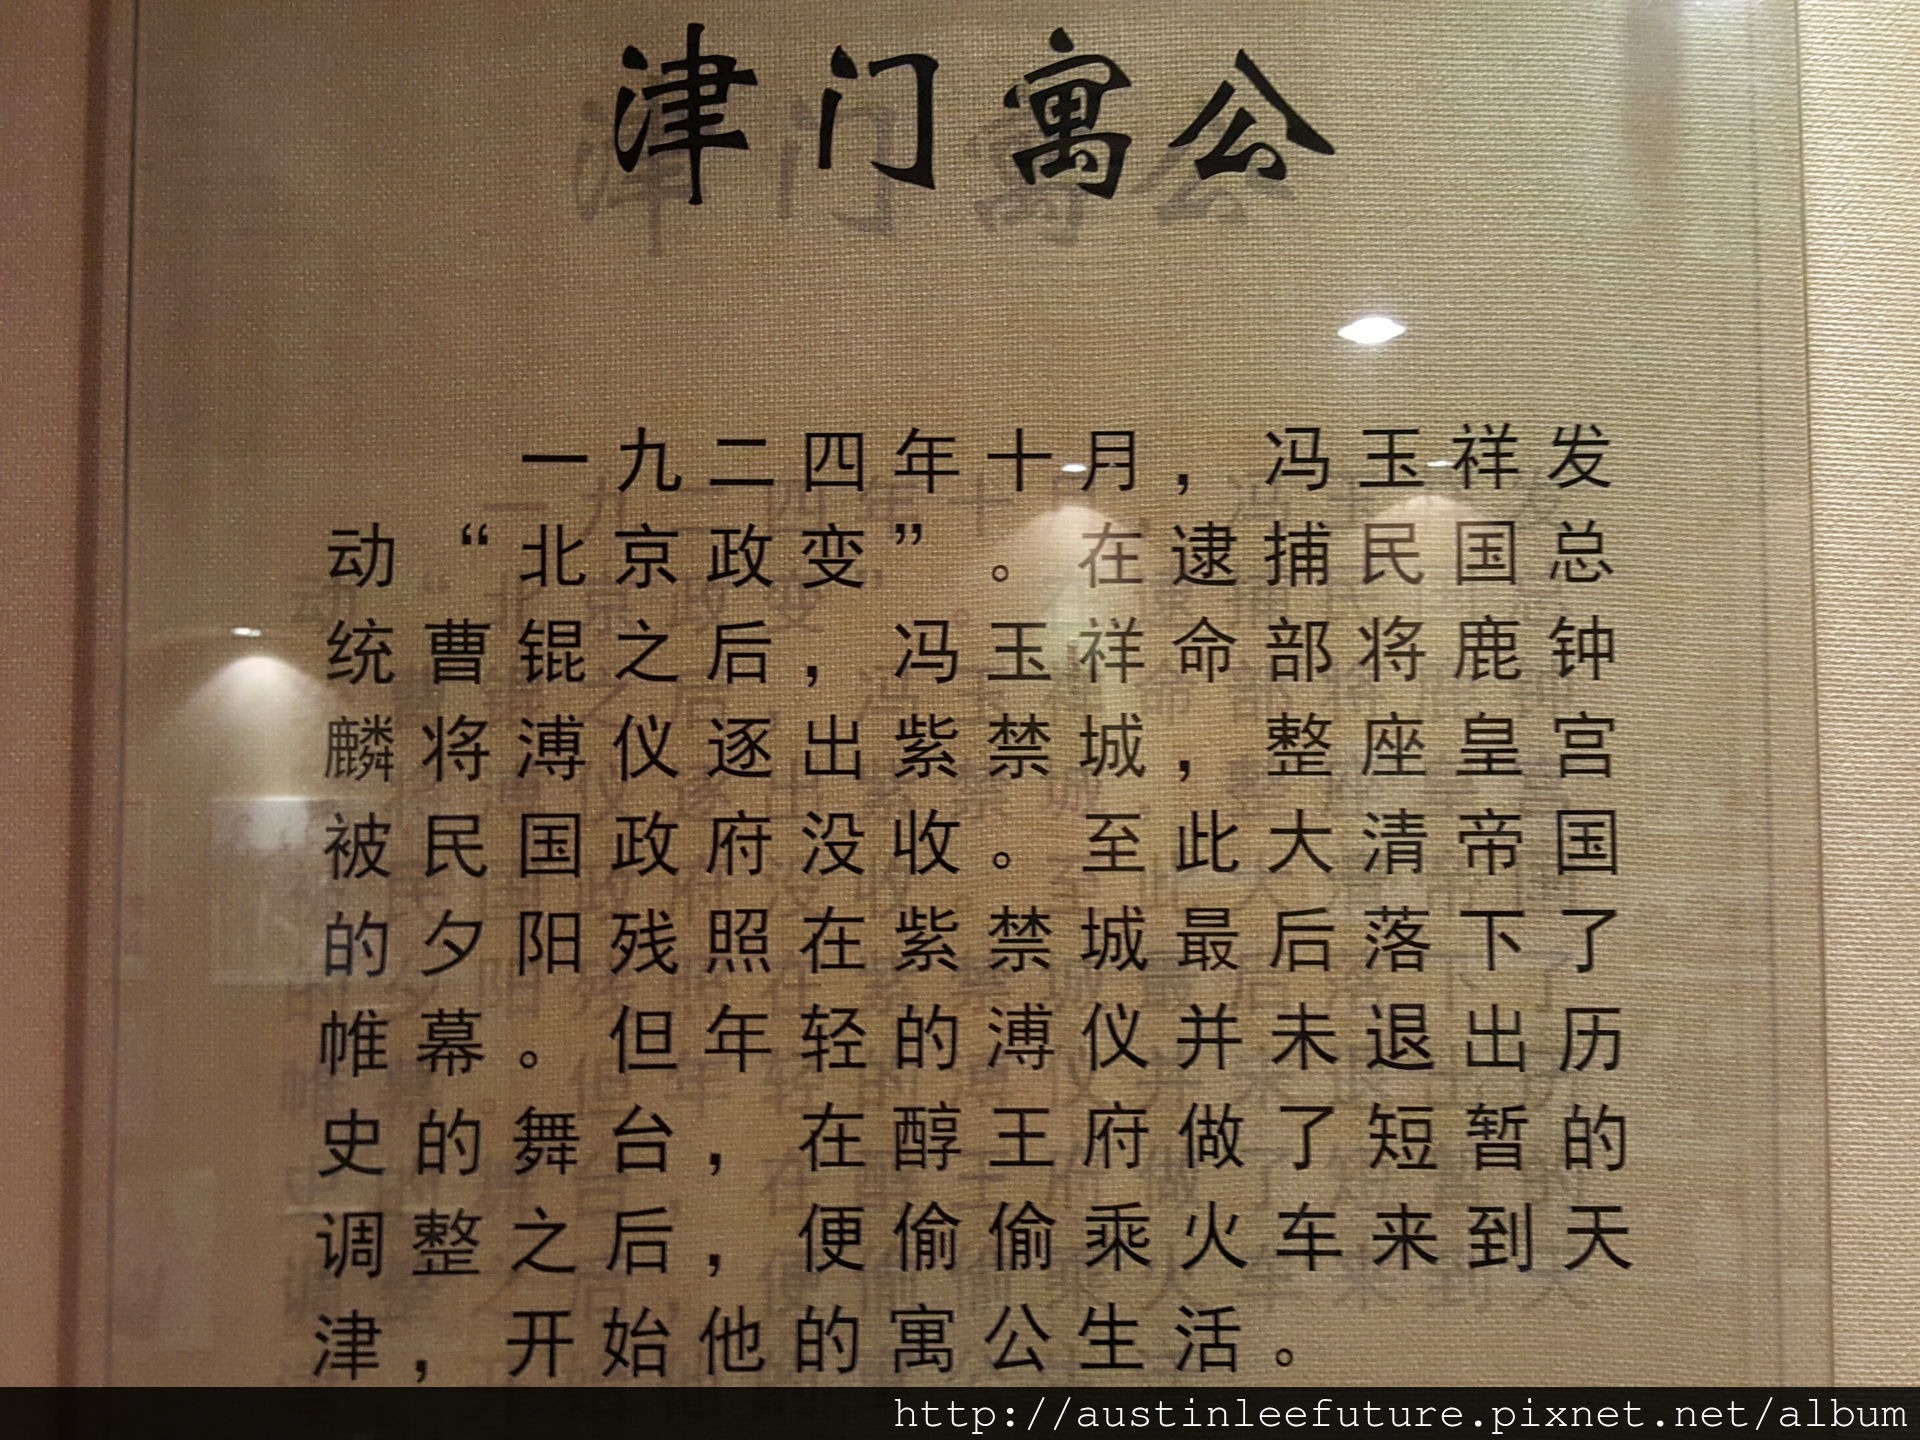 津门寓公
一九二四年十月，冯玉祥发
动“北京政变”。在逮捕民国总
统曹锟之后，冯玉祥命部将鹿钟
麟将溥仪逐出紫禁城，整座皇宫
被民国政府没收。至此大清帝国
的夕阳残照在紫禁城最后落下了
帷幕。但年轻的溥仪并未退出历
史的舞台，在醇王府做了短暂的
调整之后，便偷偷乘火车来到天
津，开始他的寓公生活。
http://austinleefuture.pixnet.net/album